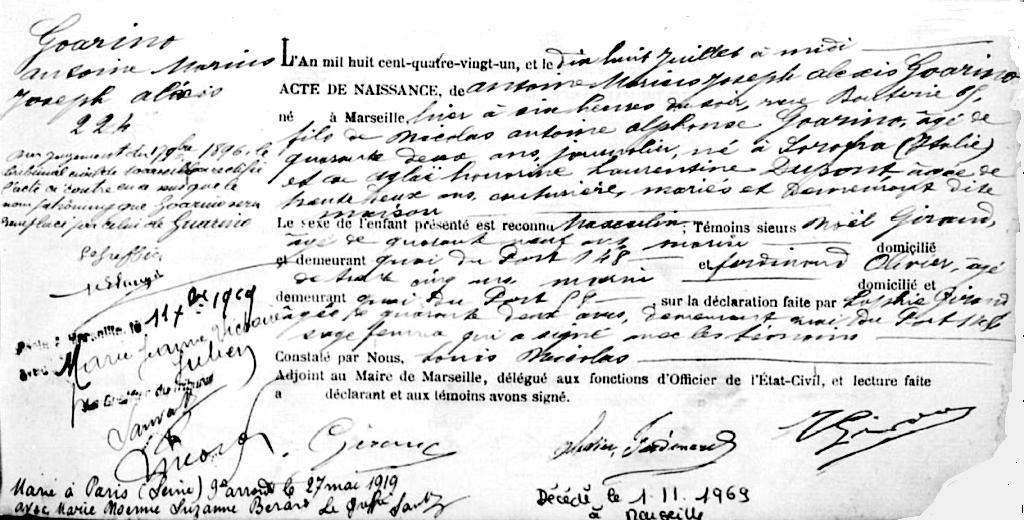 Goarino
antoine Marius
Joseph alexis
224
sur jugement du 7 9bre 1896, le
tribunal civil de Marseille a rectifié
l'acte ci contre en ce sens que le
nom patronymique Goarino sera
remplacé par celui de Guarino
Le Greffier
Marseille le 11 Xbre 1919
Marie Jeanne
Julien
L'An mil huit cent-quatre-vingt-un, et le dix huit Juillet à midi
ACTE DE NAISSANCE, de antoine Marius Joseph alexis Goarino
né à Marseille, hier à six heures du soir, rue Bouterie
fils de Nicolas antoine alphonse Goarino, âgé de
quarante deux ans, journalier, né à (Italie)
et de aglaï honorine Laurentine Dupont, âgée de
trente deux ans, couturière, mariés et demeurant dite
maison
Le sexe de l'enfant présenté est reconnu Masculin. Témoins sieurs Noël Giraud,
âgé de quarante neuf ans marin domicilié
et demeurant quai du Port 148 et ferdinand Olivier, âgé
de trente cinq ans marin domicilié et
demeurant quai du Port, sur la déclaration faite par Sophie Giraud
âgée de quarante deux ans, demeurant quai du Port 148
sage femme qui a signé avec les témoins
Constaté par Nous, Louis Nicolas
Adjoint au Maire de Marseille, délégué aux fonctions d'Officier de l'État-Civil, et lecture faite
a déclarant et aux témoins avons signé.
Giraud
Olivier Ferdinand
Marié à Paris (Seine) 9e arrondt le 27 mai 1919
avec Marie Noemie Suzanne Berard Le Greffier
Décédé le 1.11.1969
à Marseille